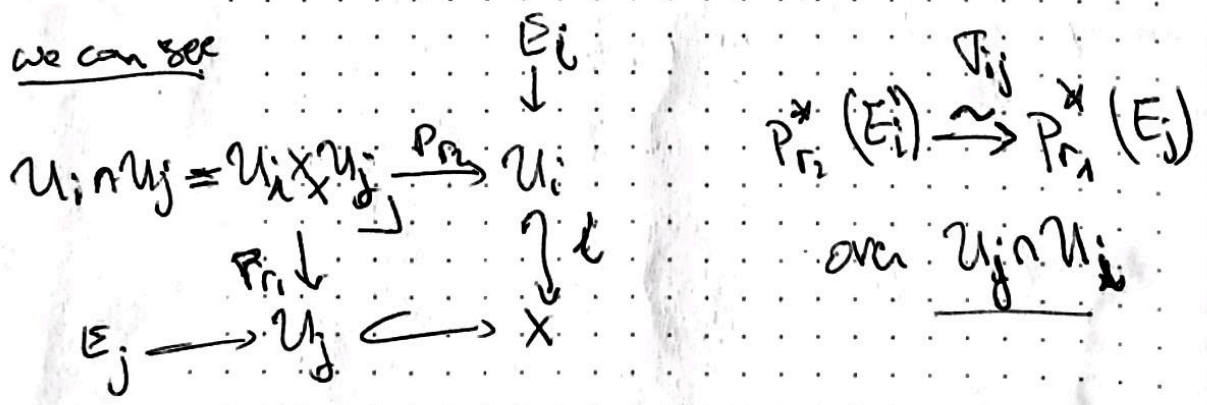 we can see
E_i
↓
U_i ∩ U_j = U_i ×_X U_j —pr_2→ U_i
pr_1 ↓ ι
E_j → U_j ↪ X
pr_2^* (E_i) —σ_ij ~→ pr_1^* (E_j)
over U_j ∩ U_i